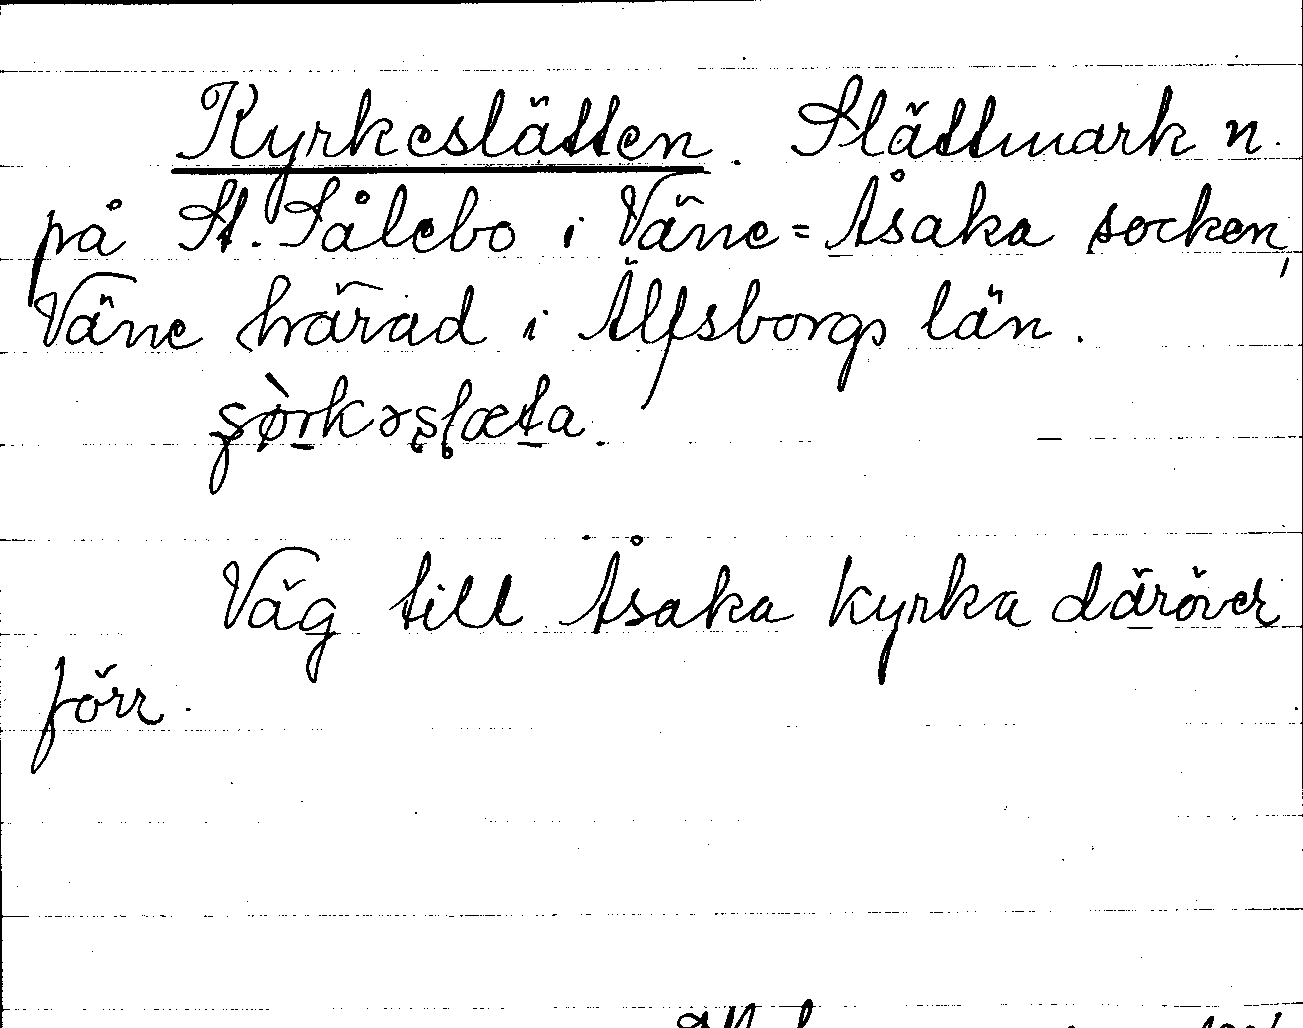 Kyrkeslätten. Slättmark n.
på St. Sålebo i Väne=Åsaka socken,
Väne härad i Älfsborgs län.
Väg till Åsaka kyrka däröver
förr.